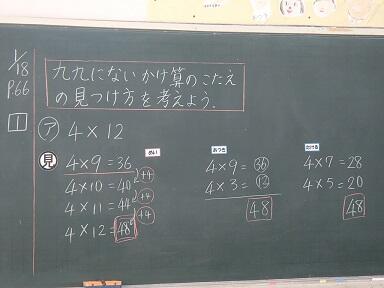 1/18
P.66
1
九九にないかけ算のこたえ
の見つけ方を考えよう.
ア 4×12
見
4×9=36
4×10=40 +4
4×11=44 +4
4×12=48 +4
4×9=36
4×3=12
48
4×7=28
4×5=20
48